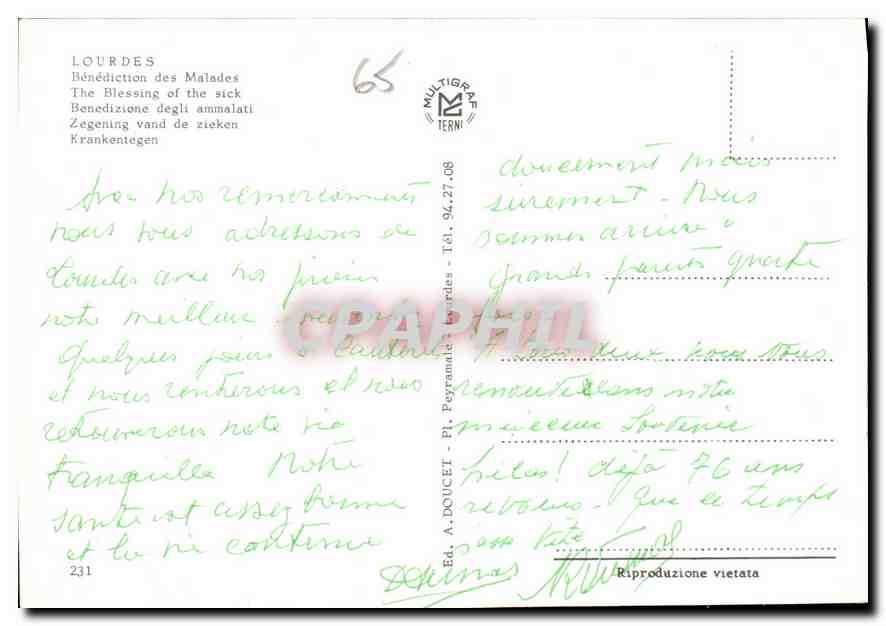 LOURDES
Bénédiction des Malades
The Blessing of the sick
Benedizione degli ammalati
Zegening vand de zieken
Krankentegen
65
MULTIGRAF
TERNI
Avec nos remerciements
nous vous adressons de
Lourdes avec nos prières
notre meilleur
Quelques jours à Cauterets
et nous rentrerons et nous
retrouverons notre vie
tranquille Notre
santé est assez bonne
et la vie continue
231
Ed. A.DOUCET - Pl. Peyramale - Lourdes - Tél. 94.27.08
doucement mais
surement - Nous
sommes arrière
grands parents quatre
fois
A tous deux nous vous
renouvelons notre
meilleur souvenir
hélas! déjà 76 ans
révolus - Que le temps
passe vite
Riproduzione vietata
CPAPHIL